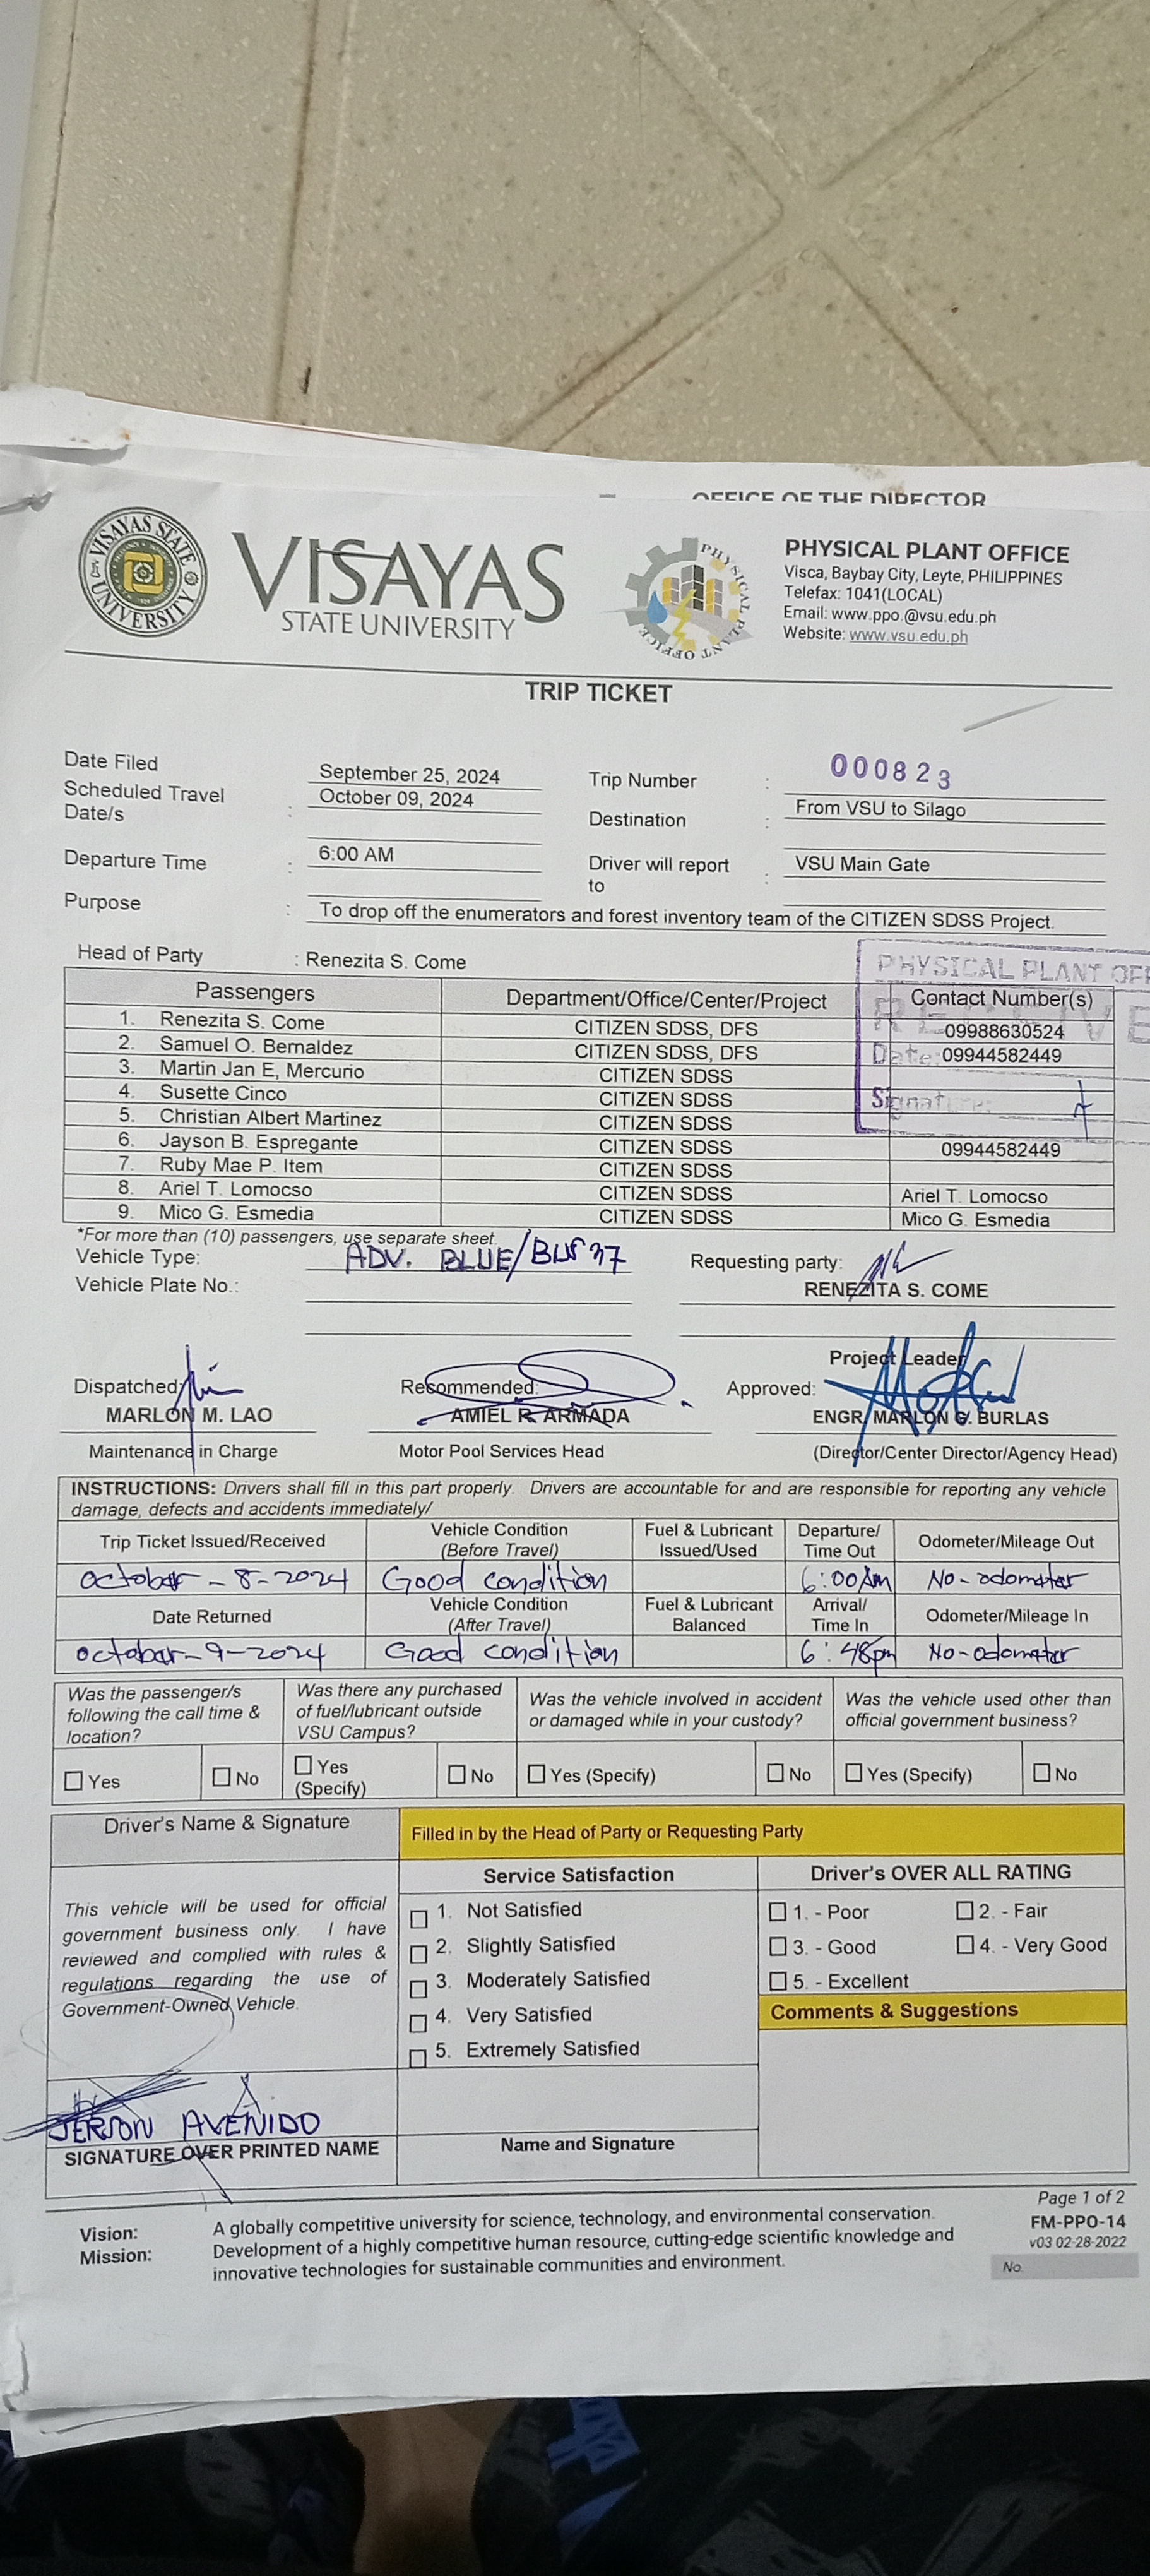 OFFICE OF THE DIRECTOR
VISAYAS STATE UNIVERSITY
VISAYAS
STATE UNIVERSITY
PHYSICAL PLANT OFFICE
PHYSICAL PLANT OFFICE
Visca, Baybay City, Leyte, PHILIPPINES
Telefax: 1041(LOCAL)
Email: www.ppo.@vsu.edu.ph
Website: www.vsu.edu.ph
TRIP TICKET
Date Filed September 25, 2024 Trip Number : 000823
Scheduled Travel Date/s : October 09, 2024 Destination : From VSU to Silago
Departure Time : 6:00 AM Driver will report to : VSU Main Gate
Purpose : To drop off the enumerators and forest inventory team of the CITIZEN SDSS Project.
Head of Party : Renezita S. Come
PHYSICAL PLANT OFF
RECEIVE
Date:
Signature:
Passengers Department/Office/Center/Project Contact Number(s)
1. Renezita S. Come CITIZEN SDSS, DFS 09988630524
2. Samuel O. Bernaldez CITIZEN SDSS, DFS 09944582449
3. Martin Jan E, Mercurio CITIZEN SDSS
4. Susette Cinco CITIZEN SDSS
5. Christian Albert Martinez CITIZEN SDSS
6. Jayson B. Espregante CITIZEN SDSS 09944582449
7. Ruby Mae P. Item CITIZEN SDSS
8. Ariel T. Lomocso CITIZEN SDSS Ariel T. Lomocso
9. Mico G. Esmedia CITIZEN SDSS Mico G. Esmedia
*For more than (10) passengers, use separate sheet.
Vehicle Type: ADV. BLUE/BUS 37 Requesting party:
Vehicle Plate No.: RENEZITA S. COME
Project Leader
Dispatched: Recommended: Approved:
MARLON M. LAO AMIEL R. ARMADA ENGR. MARLON G. BURLAS
Maintenance in Charge Motor Pool Services Head (Director/Center Director/Agency Head)
INSTRUCTIONS: Drivers shall fill in this part properly. Drivers are accountable for and are responsible for reporting any vehicle
damage, defects and accidents immediately/
Trip Ticket Issued/Received Vehicle Condition (Before Travel) Fuel & Lubricant Issued/Used Departure/ Time Out Odometer/Mileage Out
October - 8-2024 Good condition 6:00Am No-odometer
Date Returned Vehicle Condition (After Travel) Fuel & Lubricant Balanced Arrival/ Time In Odometer/Mileage In
October-9-2024 Good condition 6:48pm No-odometer
Was the passenger/s following the call time & location? Was there any purchased of fuel/lubricant outside VSU Campus? Was the vehicle involved in accident or damaged while in your custody? Was the vehicle used other than official government business?
Yes No Yes (Specify) No Yes (Specify) No Yes (Specify) No
Driver's Name & Signature Filled in by the Head of Party or Requesting Party
This vehicle will be used for official
government business only. I have
reviewed and complied with rules &
regulations regarding the use of
Government-Owned Vehicle.
Service Satisfaction
1. Not Satisfied
2. Slightly Satisfied
3. Moderately Satisfied
4. Very Satisfied
5. Extremely Satisfied
Driver's OVER ALL RATING
1. - Poor 2. - Fair
3. - Good 4. - Very Good
5. - Excellent
Comments & Suggestions
JERSON AVENIDO
SIGNATURE OVER PRINTED NAME Name and Signature
Vision: A globally competitive university for science, technology, and environmental conservation.
Mission: Development of a highly competitive human resource, cutting-edge scientific knowledge and
innovative technologies for sustainable communities and environment.
Page 1 of 2
FM-PPO-14
v03 02-28-2022
No.